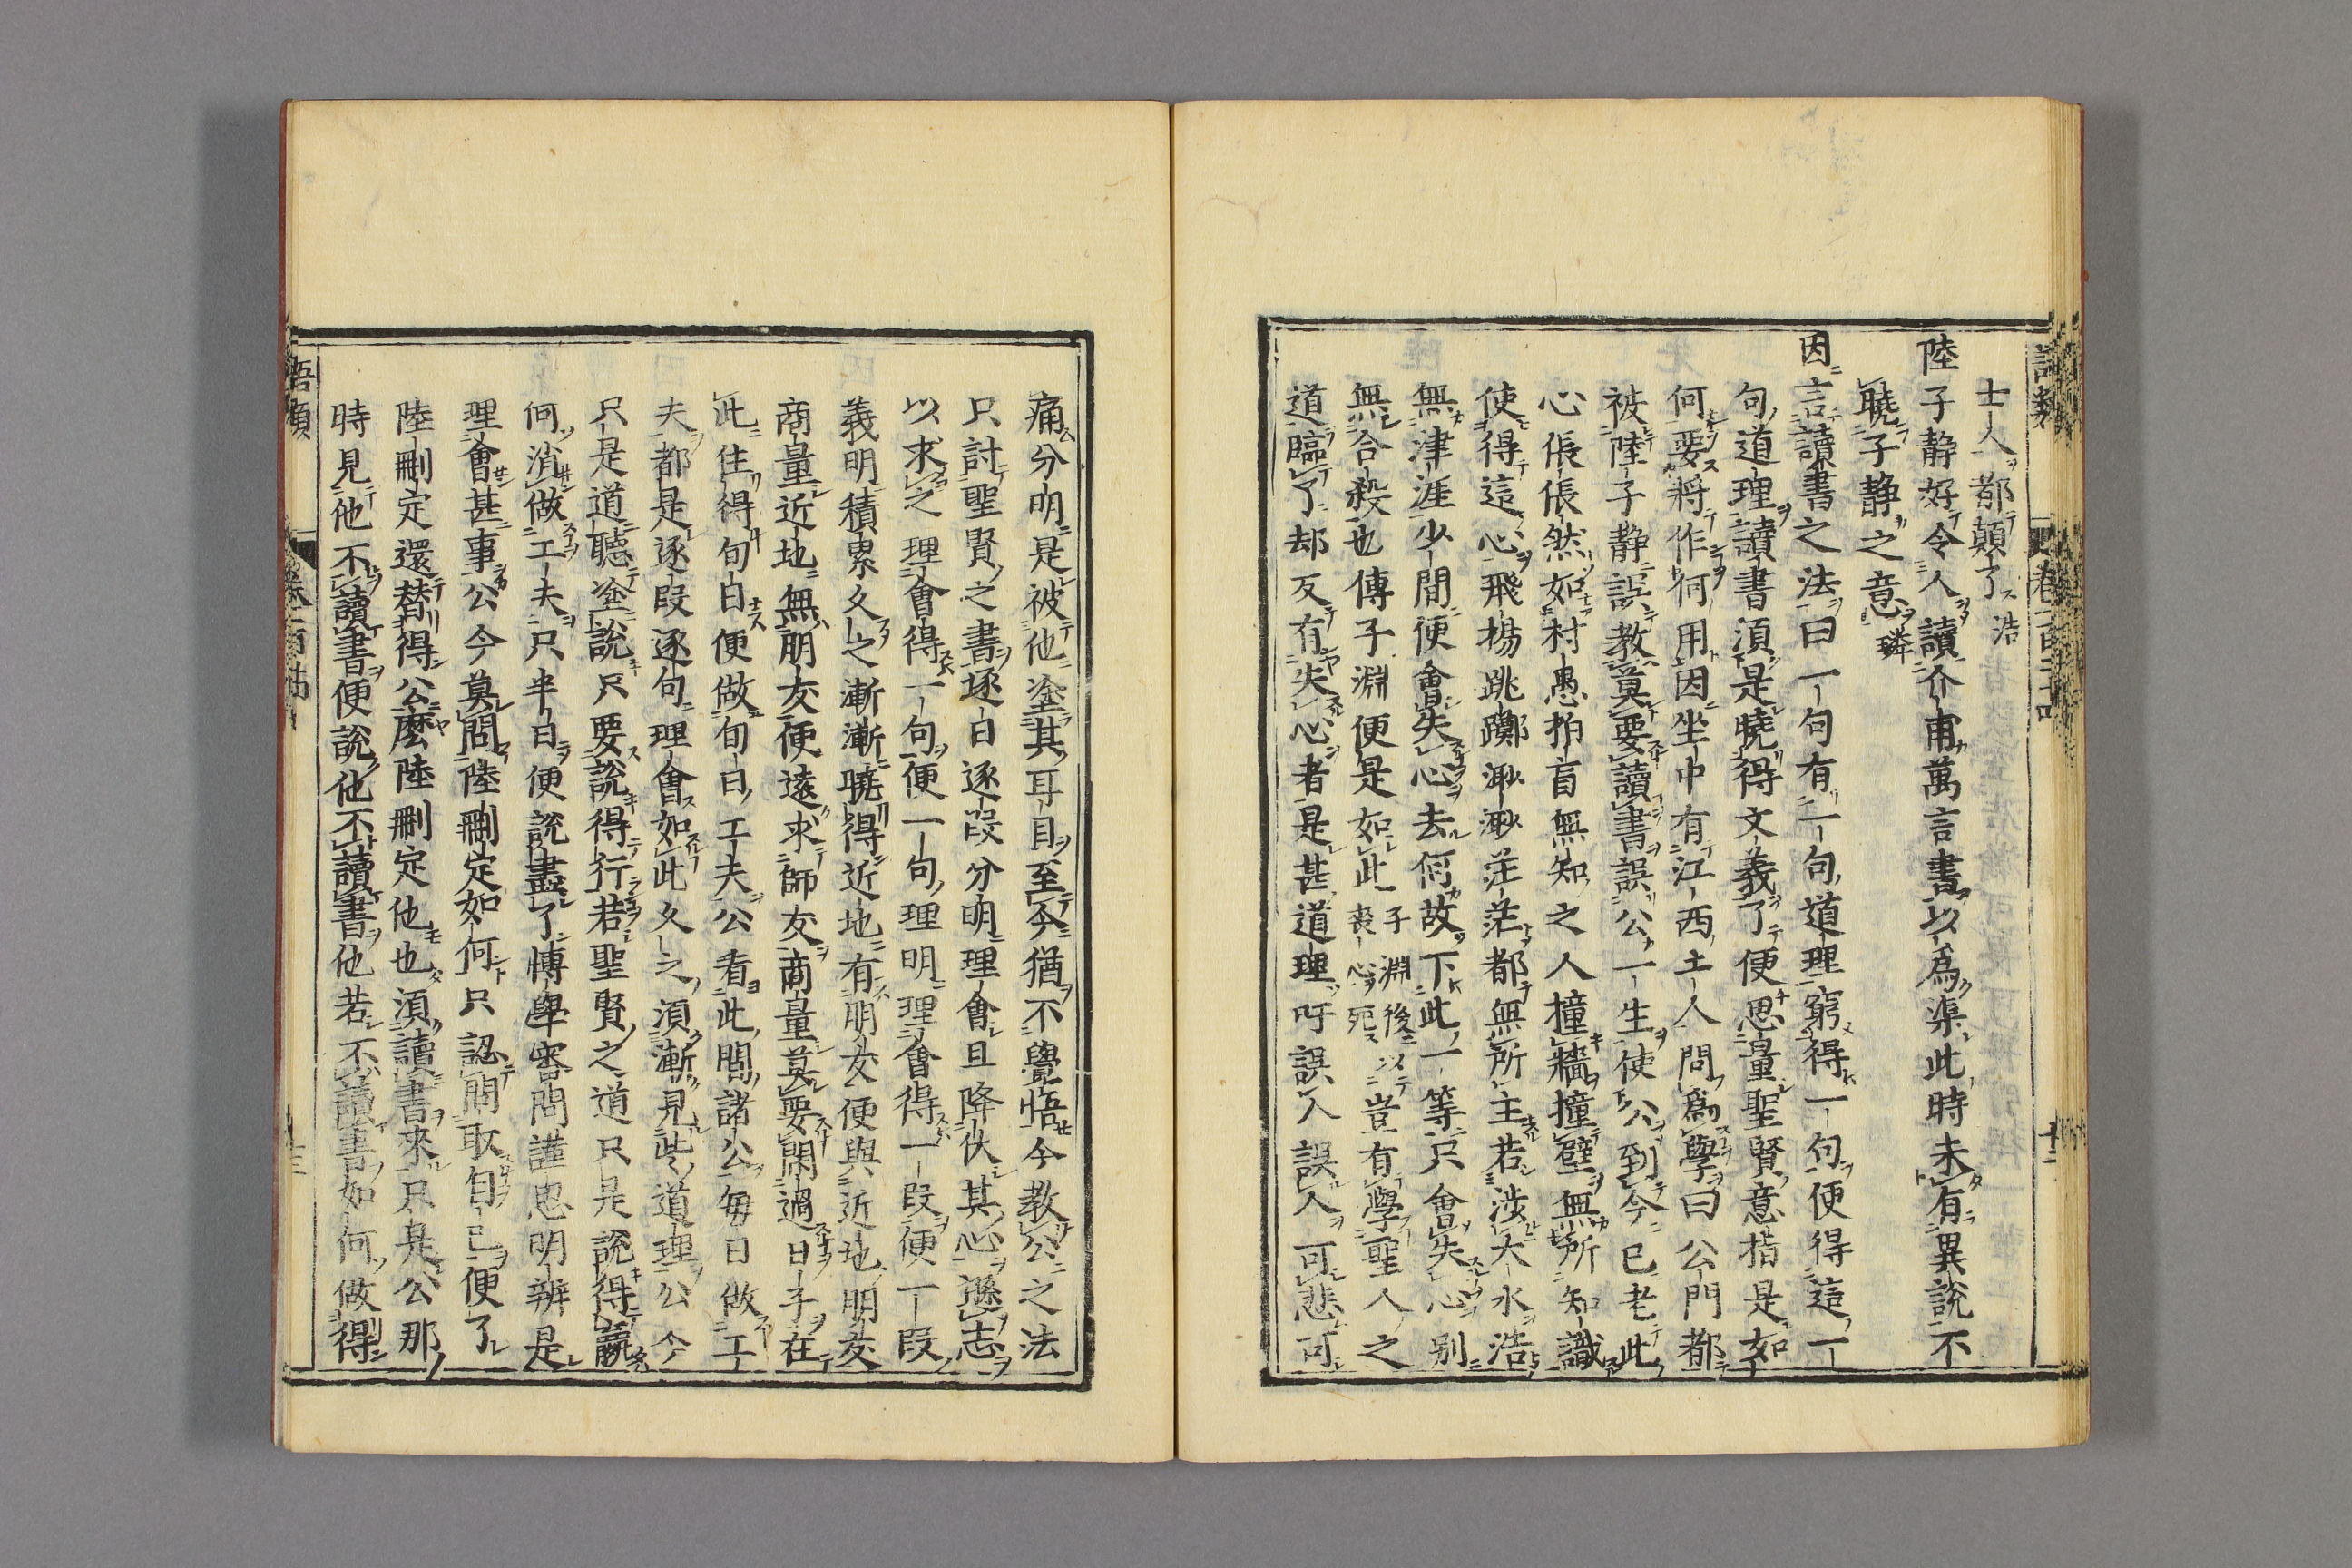 士人都顛了浩
陸子靜好令人讀介甫萬言書以為渠此時未有異說不
曉子靜之意璘
因言讀書之法曰一句有一句道理窮得一句便得這一
句道理讀書須是曉得文義了便思量聖賢意指是如
何要將作何用因坐中有江西士人問為學曰公門都
被陸子靜誤教莫要讀書誤公一生使公到今已老此
心倀倀然如村愚拍盲無知之人撞牆撞壁無所知識
使得這心飛揚跳躑渺渺茫茫都無所主若涉大水浩
無津涯少間便會失心去何故下此一等只會失心別
無合殺也傅子淵便是如此子淵後以喪心死豈有學聖人之
道臨了却反有失心者是甚道理吁誤人誤人可悲可
痛分明是被他塗其耳目至今猶不覺悟今教公之法
只討聖賢之書逐日逐段分明理會且降伏其心遜志
以求之理會得一句便一句理明理會得一段便一段
義明積累久之漸漸曉得近地有朋友便與近地朋友
商量近地無朋友便遠求師友商量莫要閑過日子在
此住得旬日便做旬日工夫公看此間諸公每日做工
夫都是逐段逐句理會如此久之須漸見些道理公今
只是道聽塗說只要說得行若聖賢之道只是說得贏
何消做工夫只半日便說盡了博學審問謹思明辨是
理會甚事公今莫問陸刪定如何只認問取自己便了
陸刪定還替得公麼陸刪定他也須讀書來只是公那
時見他不讀書便說他不讀書他若不讀書如何做得